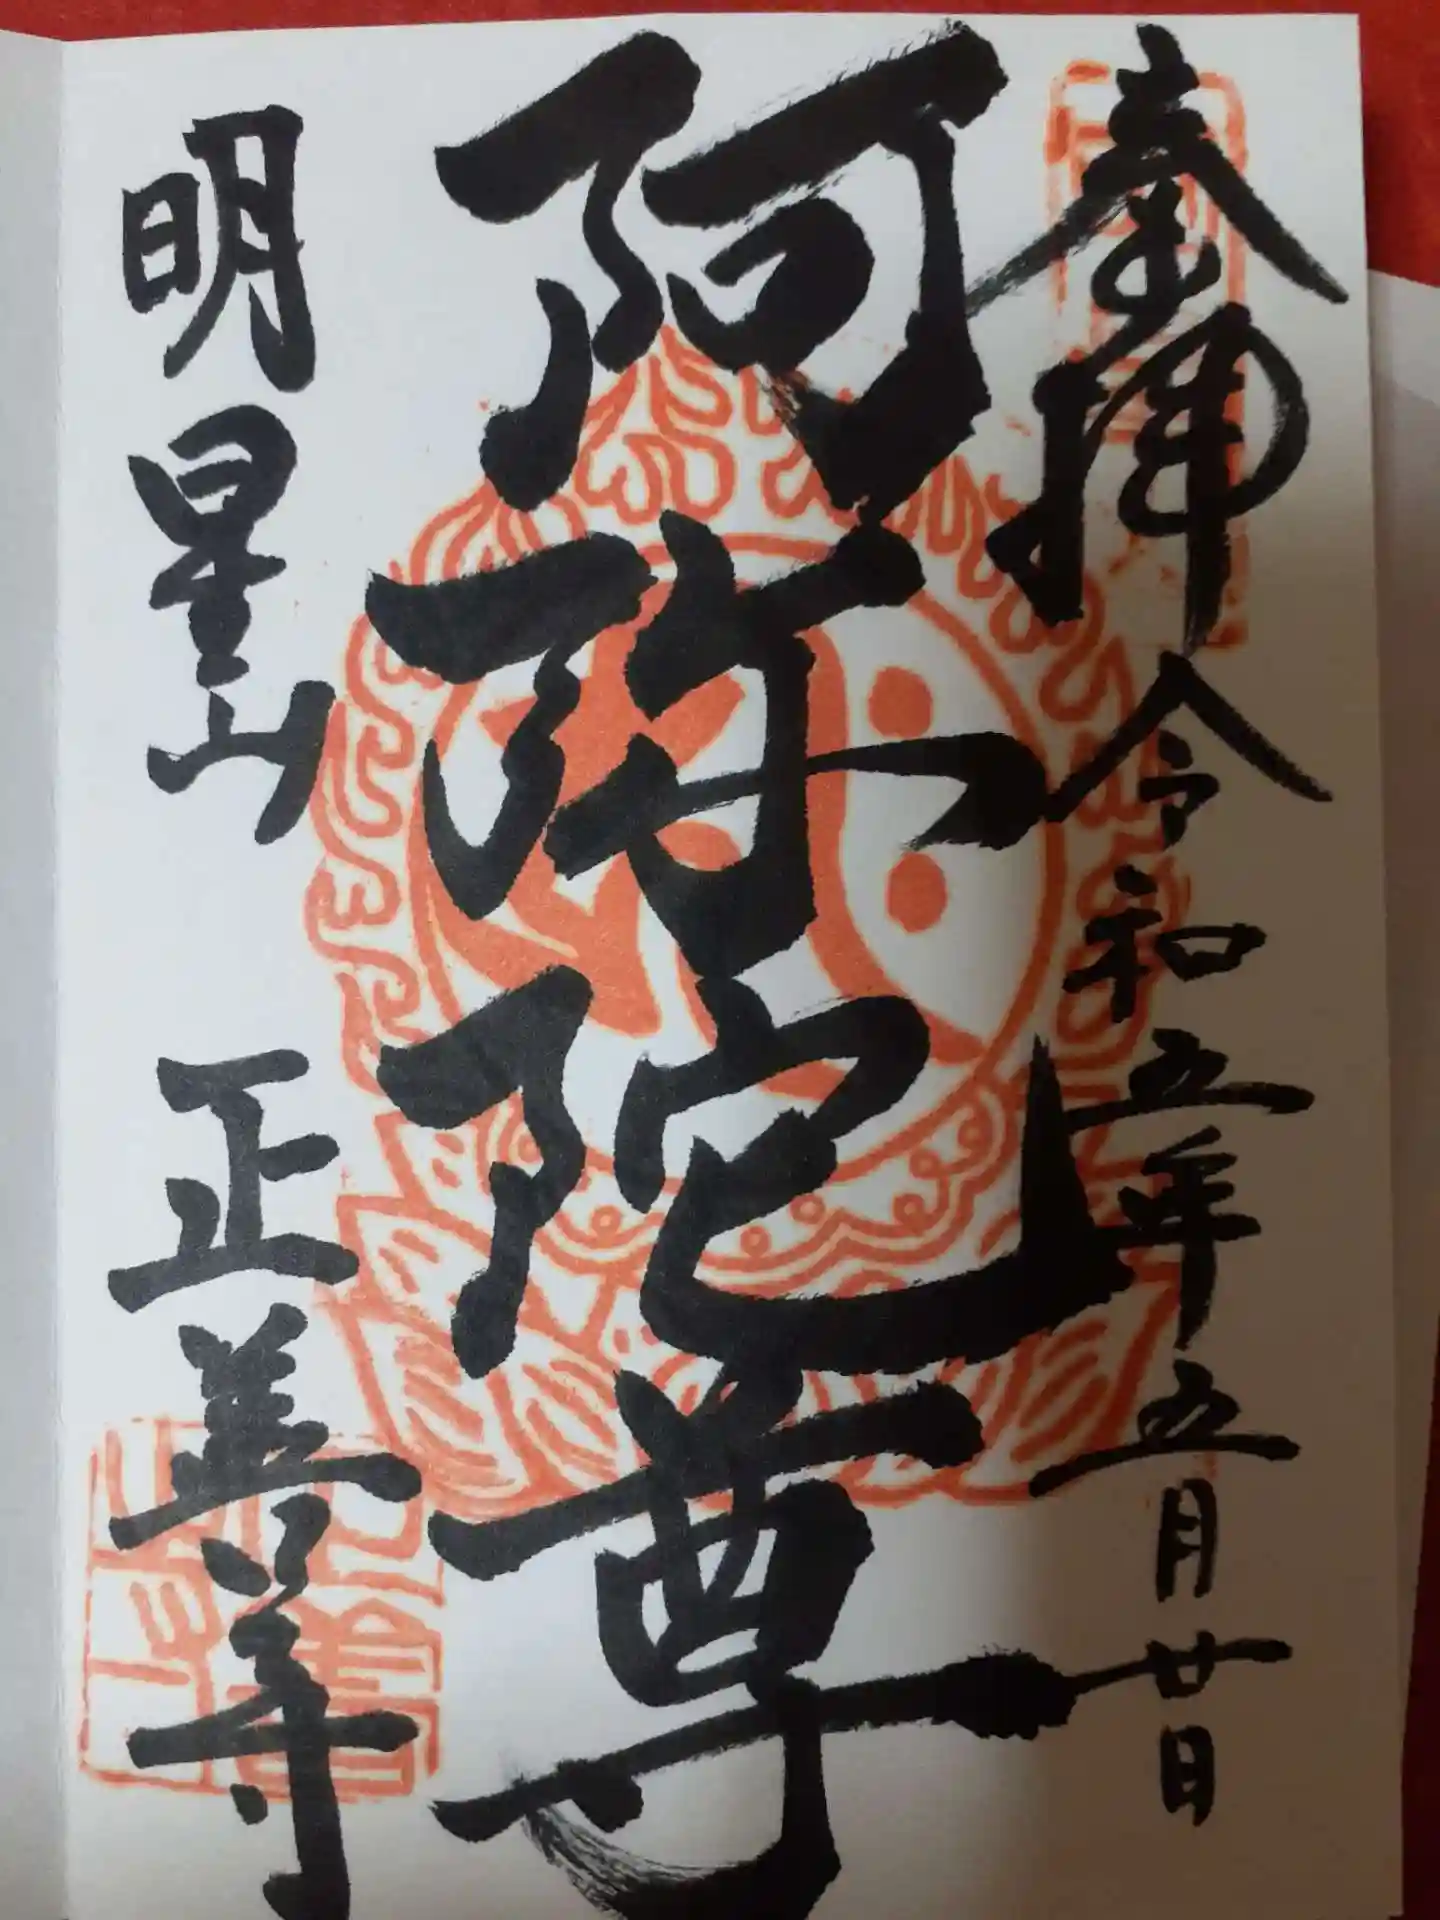 奉拝 令和五年五月廿日
阿弥陀尊
明星山 正善寺